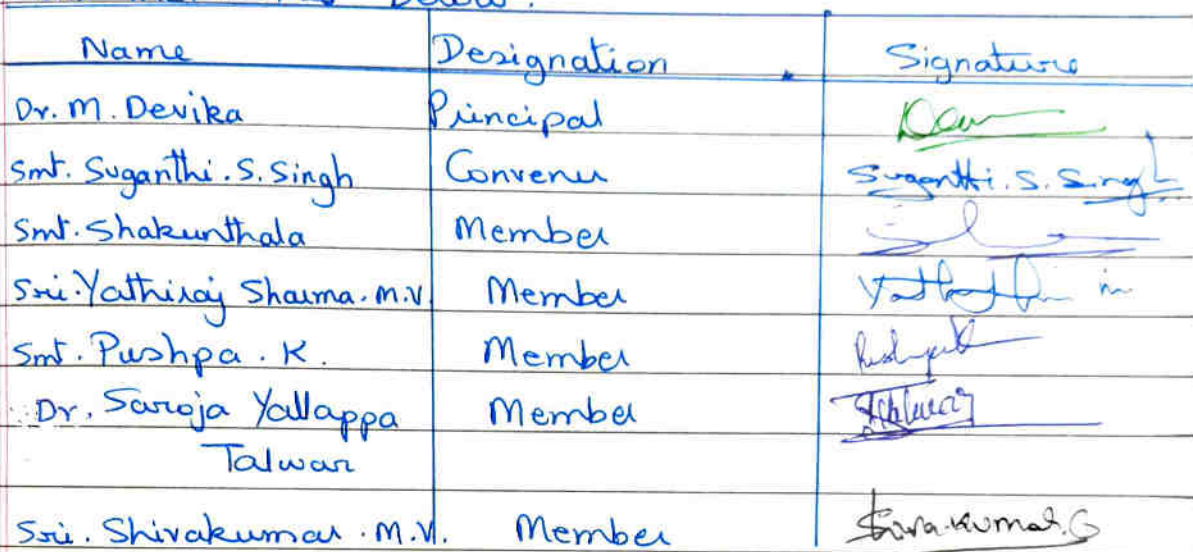 Below.
Name Designation Signature
Dr. M. Devika Principal
Smt. Suganthi. S. Singh Convener Suganthi. S. Singh
Smt. Shakunthala Member
Sri. Yathiraj Sharma. M.V. Member
Smt. Pushpa. K. Member
Dr. Saroja Yallappa Member Talwar
Talwar
Sri. Shivakumar. M.V. Member Shiva.kumar.G